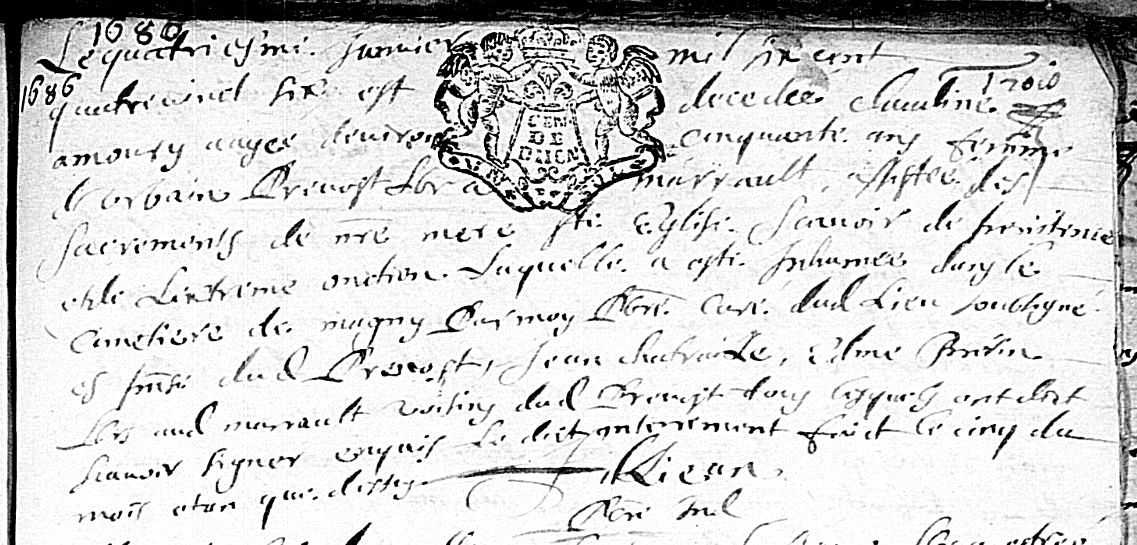 1686
Le quatriesme Janvier mil six cent
1686
quatrevint six est decedee claudine
Trois
amoury aagee denviron cinquante ans femme
GEN
DE
DIION
d'orbain Prevost Lbr a marrault, assistee des
sacrements de nre mere ste Eglise. Scavoir de penitence
et de Lextreme onction. Laquelle a esté Inhumee dans le
Cimetiere de magny Par moy Pbre Curé dud Lieu soubsigné
es pnce dud Prevost, Jean, Edme
Lbrs aud marrault voisins dud Prevost tous lesquels ont dict
scavoir signer enquis Le dict enterrement faict le cinq du
mois et an que dessus
Pbre